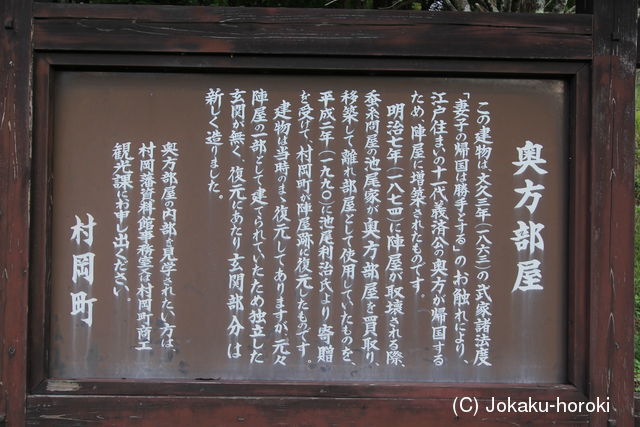 奥方部屋
この建物は、文久三年（一八六三）の武家諸法度
「妻子の帰国は勝手とする」のお触れにより、
江戸住まいの十一代義済公の奥方が帰国する
ため、陣屋に増築されたものです。
明治七年（一八七四）に陣屋が取壊される際、
蚕糸問屋の池尾家が奥方部屋を買取り、
移築して、離れ部屋として使用していたものを、
平成二年（一九九〇）に池尾利治氏より寄贈
を受けて、村岡町が陣屋跡に復元したものです。
建物は当時のまま復元してありますが、元々
陣屋の一部として建てられていたため独立した
玄関が無く、復元にあたり玄関部分は
新しく造りました。
奥方部屋の内部を見学されたい方は、
村岡藩資料館事務室又は村岡町商工
観光課にお申し出ください。
村岡町
(C) Jokaku-horoki